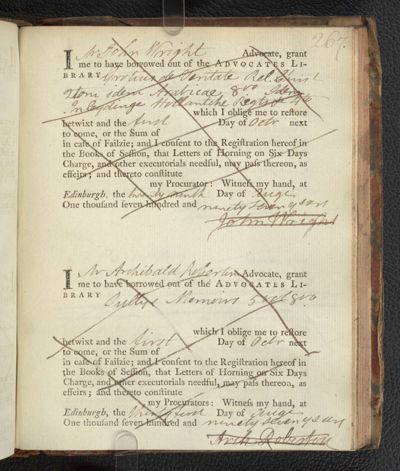 267.
I Mr John Wright Advocate, grant
me to have borrowed out of the ADVOCATES LI-
BRARY Grotius de Veritate Rel. Christ
2 tom idem Arabicae, 8vo Idem
which I oblige me to restore
betwixt and the first Day of Octr next
to come, or the Sum of
in case of Failzie; and I consent to the Registration hereof in
the Books of Session, that Letters of Horning on Six Days
Charge, and other executorials needful, may pass thereon, as
effeirs; and thereto constitute
my Procurator: Witness my hand, at
Edinburgh, the twenty ninth Day of
One thousand seven hundred and ninety seven years
John Wright
I Mr Archibald Robertson Advocate, grant
me to have borrowed out of the ADVOCATES LI-
BRARY Sullys Memoirs 5 vol 8vo.
which I oblige me to restore
betwixt and the first Day of Octr next
to come, or the Sum of
in case of Failzie; and I consent to the Registration hereof in
the Books of Session, that Letters of Horning on Six Days
Charge, and other executorials needful, may pass thereon, as
effeirs; and thereto constitute
my Procurators: Witness my hand, at
Edinburgh, the Day of
One thousand seven hundred and ninety seven years
Arch Robertson